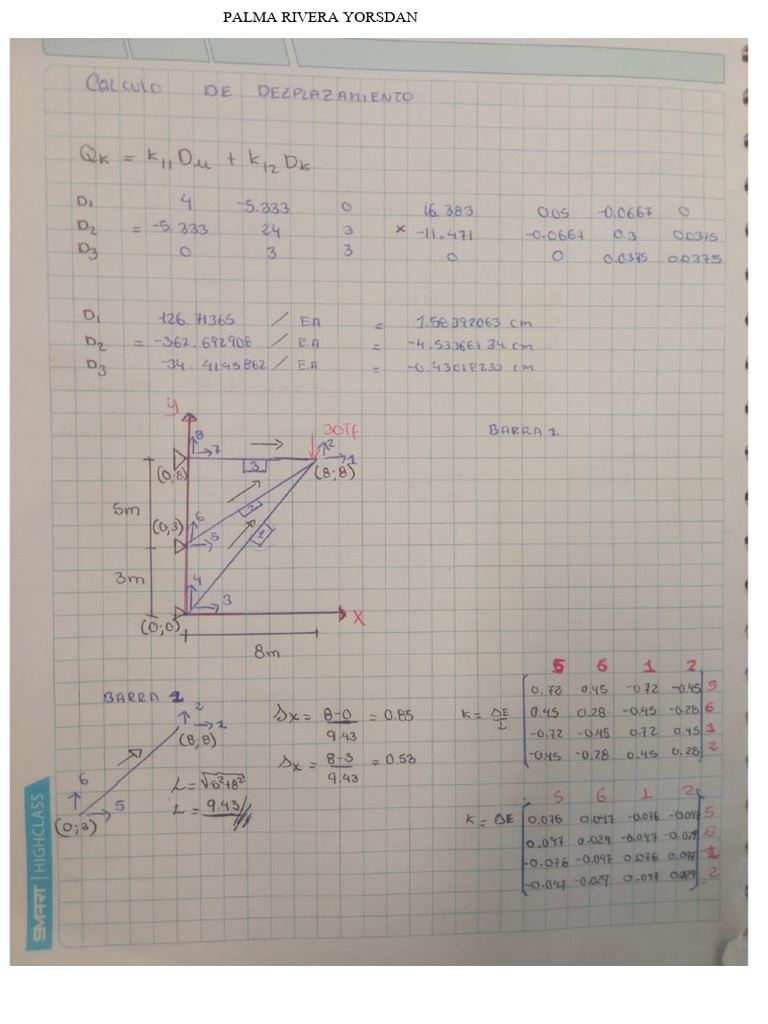 PALMA RIVERA YORSDAN
CALCULO DE DEZPLAZAMIENTO
QK = K11 Dμ + K12 DK
D1 4 -5.333 0 16.383 0.05 -0.0667 0
D2 = -5.333 24 3 × -11.471 -0.0667 0.3 0.0375
D3 0 3 3 0 0 0.0375 0.0375
D1 126.71365 / EA = 1.58392063 cm
D2 = -362.692908 / E.A = -4.53366134 cm
D3 -34.4145862 / E.A = -0.43018233 cm
y
8
7
3
30Tf
2
1
BARRA 1
(0;8)
(8;8)
5m
2
(0;3)
6
5
1
3m
4
3
(0;0)
X
8m
BARRA 2
2
1
(8;8)
6
5
(0;3)
L = √5²+8²
L = 9.43//
Δx = 8-0/9.43 = 0.85
Δx = 8-3/9.43 = 0.53
5 6 1 2
0.72 0.45 -0.72 -0.45 5
K = ΔE/L 0.45 0.28 -0.45 -0.28 6
-0.72 -0.45 0.72 0.45 1
-0.45 -0.28 0.45 0.28 2
5 6 1 2
K = ΔE 0.076 0.047 -0.076 -0.047 5
0.047 0.029 -0.047 -0.029 6
-0.076 -0.047 0.076 0.047 1
-0.047 -0.029 0.047 0.029 2
SMART | HIGHCLASS